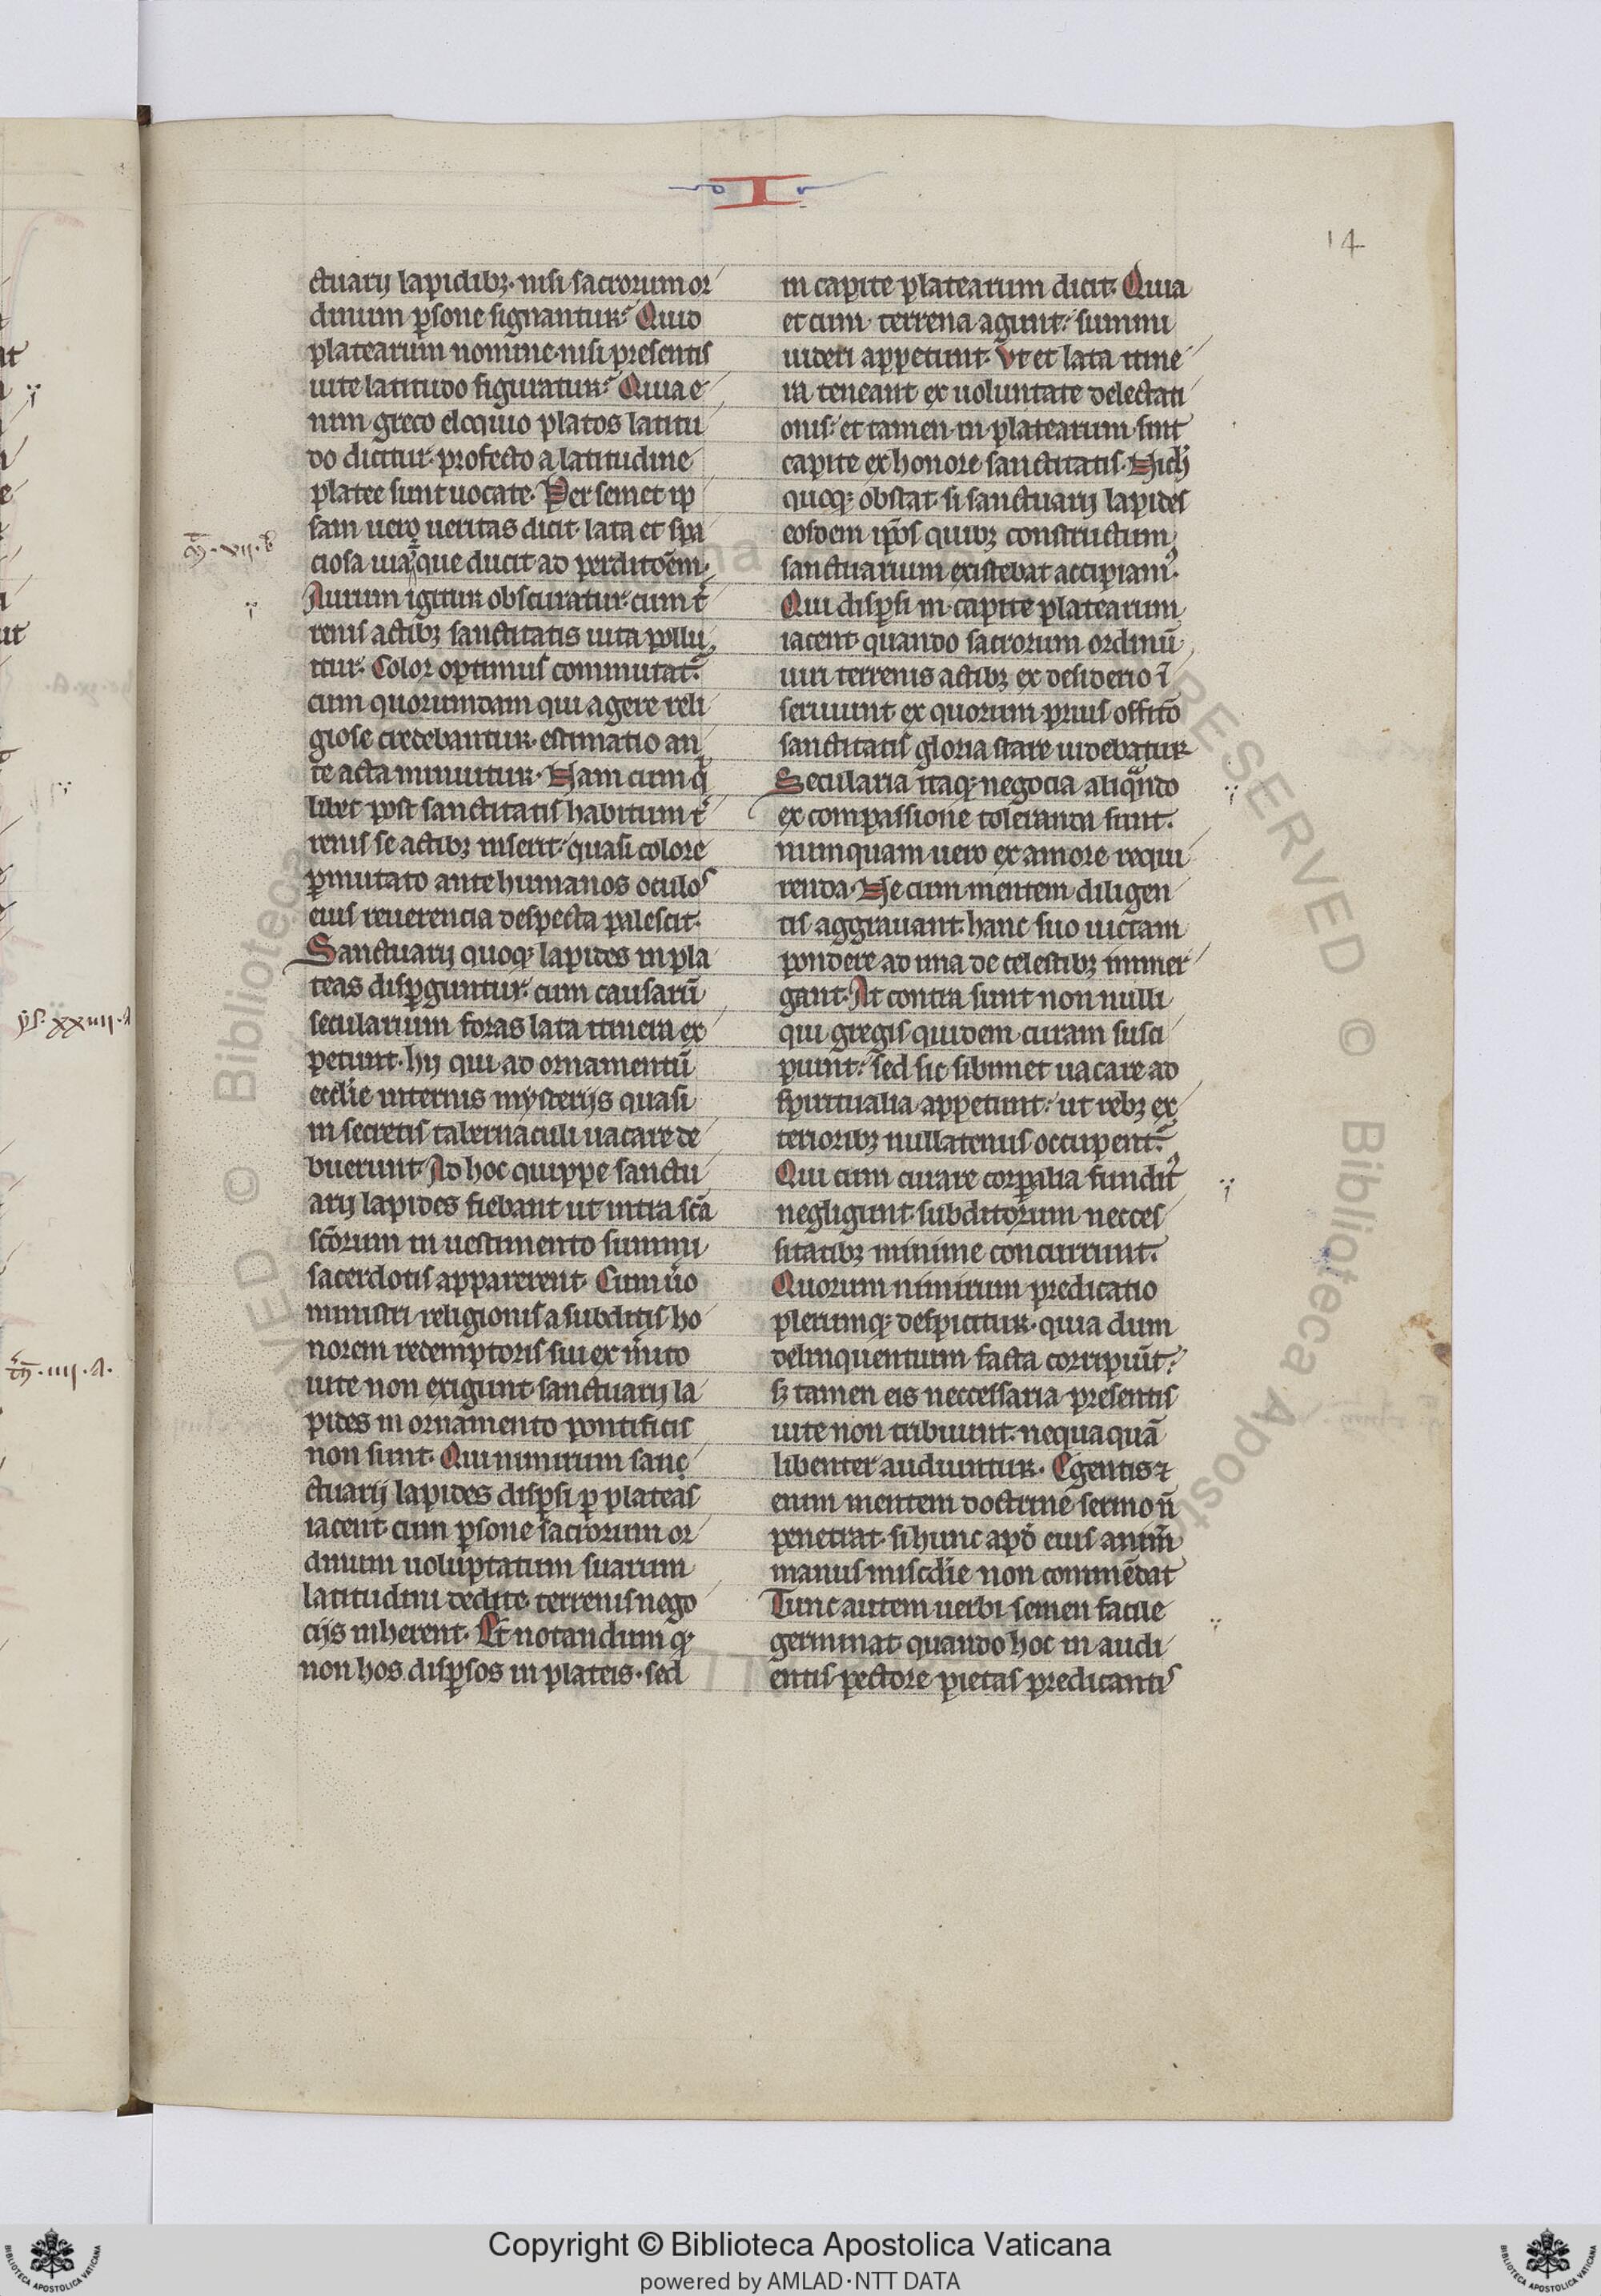 I
14
ctuarij lapidibꝫ· nisi sacrorum or
dinum ꝑsone signantur? Quid
platearum nomine· nisi presentis
uite latitudo figuratur? Quia e
nim greco eloquio platos latitu
do dicitur· profecto a latitudine
platee sunt uocate· Per semet ip
sam uero ueritas dicit· lata et spa
m̄· vii· b
ciosa uia que ducit ad perditōem·
Aurum igitur obscuratur· cum t̾
renis actibꝫ sanctitatis uita pollu
itur· Color optimus commutat᷑·
cum quorumdam qui agere reli
giose credebantur· estimatio an
te acta minuitur· Nam cum q̇
libet post sanctitatis habitum t̾
renis se actibꝫ inserit· quasi colore
ꝑmutato ante humanos oculos
eius reuerencia despecta palescit·
Sanctuarij quoqꝫ lapides in pla
teas disꝑguntur· cum causarū
secularium foras lata itinera ex
petunt· hij qui ad ornamentū
ecclīe internis mysterijs quasi
in secretis tabernaculi uacare de
buerunt· Ad hoc quippe sanctu
arij lapides fiebant ut intra scā
scōrum in uestimento summi
sacerdotis apparerent· Cum ůo
ministri religionis a subditis ho
norem redemptoris sui ex m̾ito
uite non exigunt· sanctuarij la
pides in ornamento pontificis
non sunt· Qui nimirum sanc
ctuarij lapides disꝑsi ꝑ plateas
iacent· cum ꝑsone sacrorum or
dinum uoluptatum suarum
latitudini dedite· terrenis nego
cijs inherent· Et notandum qꝫ
non hos disꝑsos in plateis· sed
in capite platearum dicit· Quia
et cum terrena agunt· summi
uideri appetunt· Vt et lata itine
ra teneant ex uoluntate delectati
onis· et tamen in platearum sint
capite ex honore sanctitatis· Nich̾
quoqꝫ obstat· si sanctuarij lapides
eosdem ip̄os quibꝫ constructum
sanctuarium existebat accipiamꝰ·
Qui disꝑsi in capite platearum
iacent· quando sacrorum ordinū
uiri terrenis actibꝫ ex desiderio ī
seruiunt· ex quorum prius offitō
sanctitatis gloria stare uidebatur
Secularia itaqꝫ negocia aliqᷓndo
ex compassione toleranda sunt·
numquam uero ex amore requi
renda· Ne cum mentem diligen
tis aggrauant· hanc suo uictam
pondere ad una de celestibꝫ inmer
gant· At contra sunt non nulli
qui gregis quidem curam susci
piunt· sed sic sibimet uacare ad
spiritualia appetunt· ut rebꝫ ex
terioribꝫ nullatenus occupent᷑·
Qui cum curare corꝑalia fundit᷑
negligunt· subditorum necces
sitatibꝫ minime concurrunt·
Quorum nimirum predicatio
plerumqꝫ despicitur· quia dum
delinquentium facta corripiūt·
sꝫ tamen eis neccessaria presentis
uite non tribuunt· nequaquā
libenter audiuntur· Egentis ⁊
enim mentem doctrine sermo ñ
penetrat· si hunc apđ eius anim̄
manus miscd̾ie non commēdat
Tunc autem uerbi semen facile
germinat· quando hoc in audi
entis pectore pietas predicantis
ys· xxiiii· a
tħ· iiii· a·
Copyright © Biblioteca Apostolica Vaticana
powered by AMLAD·NTT DATA